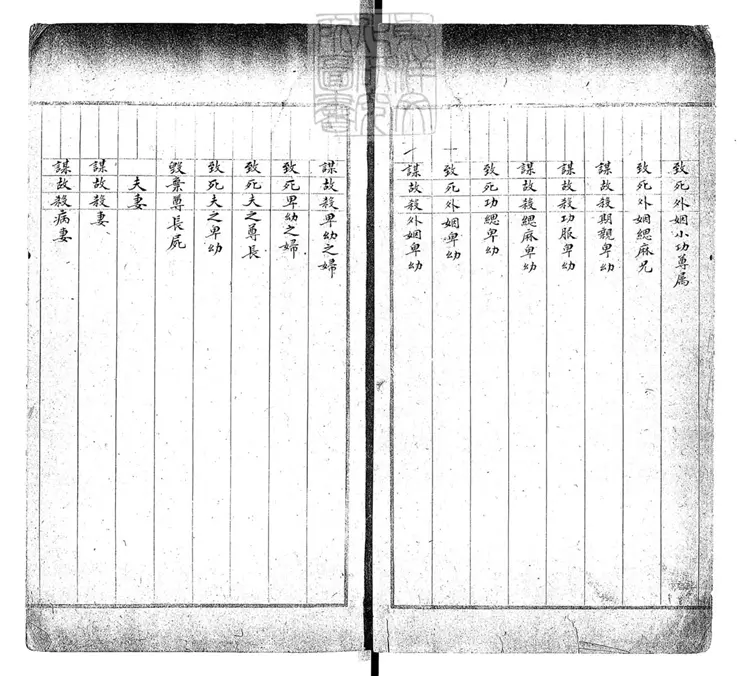 致死外姻小功尊属
致死外姻緦麻兄
謀故殺期親卑幼
謀故殺功服卑幼
謀故殺緦麻卑幼
致死功緦卑幼
致死外姻卑幼
謀故殺外姻卑幼
謀故殺卑幼之婦
致死卑幼之婦
致死夫之尊長
致死夫之卑幼
毀棄尊長屍
夫妻
謀故殺妻
謀故殺病妻